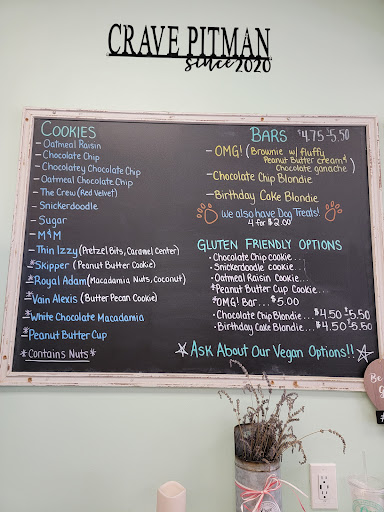 CRAVE PITMAN
since 2020
COOKIES
- Oatmeal Raisin
- Chocolate Chip
- Chocolatey Chocolate Chip
- Oatmeal Chocolate Chip
- The Crew (Red Velvet)
- Snickerdoodle
- Sugar
- M&M
- Thin Izzy (Pretzel Bits, Caramel Center)
*Skipper (Peanut Butter Cookie)
*Royal Adam (Macadamia Nuts, Coconut)
*Vain Alexis (Butter Pecan Cookie)
*White Chocolate Macadamia
*Peanut Butter Cup
*Contains Nuts*
BARS $4.75 & 5.50
- OMG! (Brownie w/ fluffy
Peanut Butter cream &
Chocolate ganache)
- Chocolate Chip Blondie
- Birthday Cake Blondie
We also have Dog Treats!
4 for $2.00
GLUTEN FRIENDLY OPTIONS
• Chocolate Chip cookie...
• Snickerdoodle cookie...
• Oatmeal Raisin Cookie...
*Peanut Butter Cup Cookie...
*OMG! Bar... $5.00
• Chocolate Chip Blondie... $4.50 & 5.50
• Birthday Cake Blondie... $4.50 & 5.50
ASK ABOUT OUR VEGAN OPTIONS!!
Be